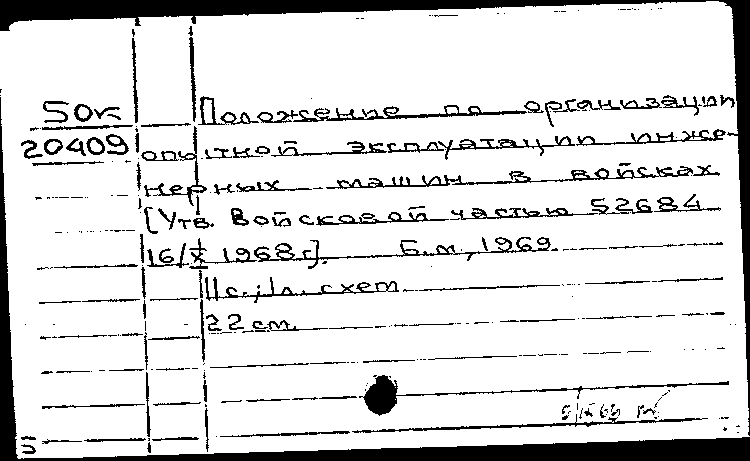 50к Положение по организации
20409 опытной эксплуатации инже-
нерных машин в войсках.
[Утв. Войсковой частью 52684
16/X 1968 г.]. Б.м., 1969.
11с.; 1л. схем.
22 см.